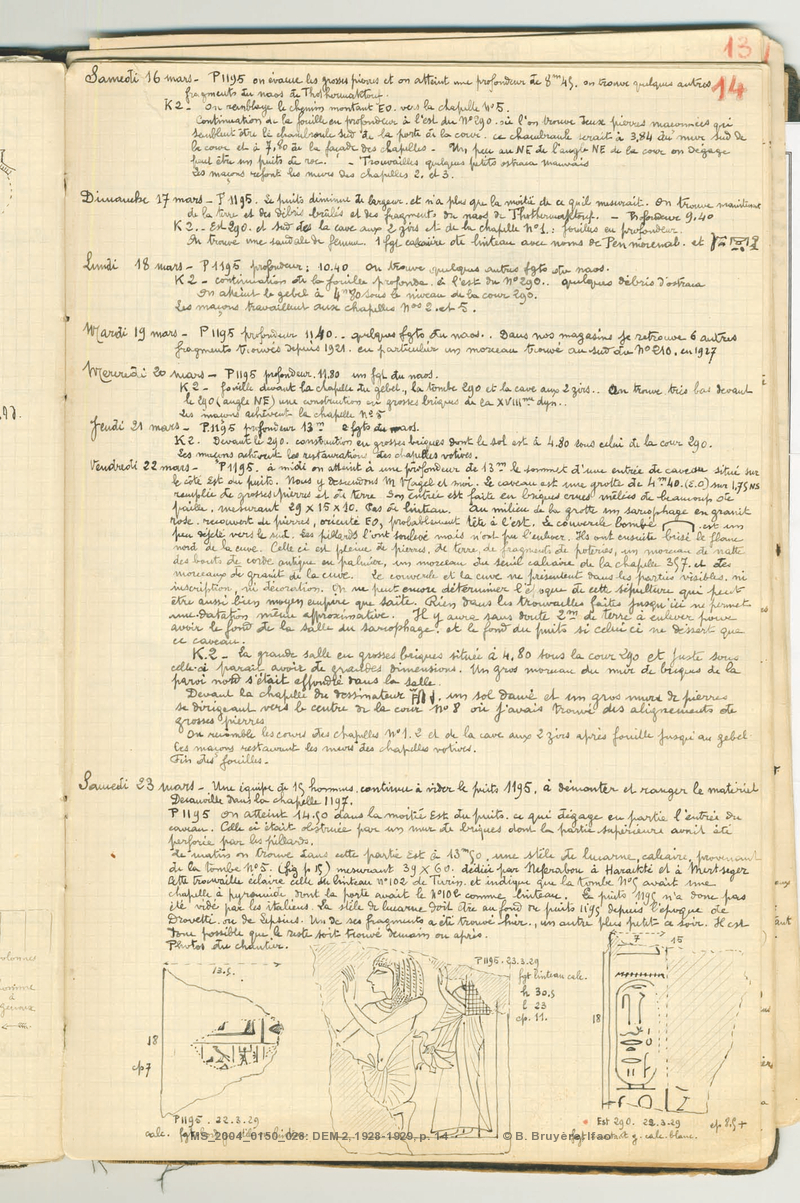 13
14
Samedi 16 mars - P1195 on évacue les grosses pierres et on atteint une profondeur de 8m45. on trouve quelques autres
fragments du naos de Thothermaktouf.
K2 - On remblaye le chemin montant EO. vers la chapelle N°5.
Continuation de la fouille en profondeur à l'est du N°290. où l'on trouve deux pierres maçonnées qui
semblent être le chambranle sud de la porte de la cour. ce chambranle serait à 3,84 du mur sud de
la cour et à 7,80 de la façade des chapelles - Un peu au NE de l'angle NE de la cour on dégage
peut être un puits de roc. - Trouvailles quelques petits ostraca mauvais
Les maçons refont les murs des chapelles 2. et 3.
Dimanche 17 mars - P 1195. Le puits diminue de largeur et n'a plus que la moitié de ce qu'il mesurait. On trouve maintenant
de la terre et des débris brûlés et des fragments du naos de Thothermaktouf. - Profondeur 9,40
K2. - Est 290. et sud de la cave aux 2 zirs et de la chapelle N°1. : fouilles en profondeur.
On trouve une sandale de femme. 1 fgt calcaire de linteau avec noms de Pen mérenab. et
Lundi 18 mars - P1195 profondeur : 10.40 On trouve quelques autres fgts du naos.
K2 - continuation de la fouille profonde à l'est du N°290. quelques débris d'ostraca
On atteint le gebel à 4m80 sous le niveau de la cour 290.
Les maçons travaillent aux chapelles Nos 2. et 5.
Mardi 19 mars - P1195 profondeur 11,40. - quelques fgts du naos. . Dans nos magasins je retrouve 6 autres
fragments trouvés depuis 1921. en particulier un morceau trouvé au sud du N°210. en 1927
Mercredi 20 mars - P1195 profondeur. 11.80 un fgt du naos.
K2 - fouille devant la chapelle du gebel, la tombe 290 et la cave aux 2 zirs. . On trouve très bas devant
le 290 (angle NE) une construction en grosses briques de la XVIIIme dyn.
Les maçons achèvent la chapelle N°5
Jeudi 21 mars - P1195 profondeur 13m 2 fgts du naos.
K2. Devant le 290. construction en grosses briques dont le sol est à 4.80 sous celui de la cour 290.
Les maçons achèvent les restaurations des chapelles votives.
Vendredi 22 mars - P1195. à midi on atteint à une profondeur de 13m le sommet d'une entrée de caveau situé sur
le côté Est du puits. Nous y descendons M Nagel et moi. Le caveau est une grotte de 4m40. (E.O) sur 1,75 NS
remplie de grosses pierres et de terre. Son entrée est faite en briques crues mêlées de beaucoup de
paille, mesurant 29 x 15 x 10. Pas de linteau. Au milieu de la grotte un sarcophage en granit
rose. recouvert de pierres, orienté EO, probablement tête à l'est. Le couvercle bombé est un
peu déplacé vers le sud. Les pillards l'ont soulevé mais n'ont pu l'enlever. Ils ont ensuite brisé le flanc
nord de la cuve. Celle ci est pleine de pierres, de terre, de fragments de poteries, un morceau de natte
des bouts de corde antique en palmier, un morceau du seuil calcaire de la chapelle 357. et des
morceaux de granit de la cuve. Le couvercle et la cuve ne présentent dans les parties visibles, ni
inscription, ni décoration. On ne peut encore déterminer l'époque de cette sépulture qui peut
être aussi bien moyen empire que saïte. Rien dans les trouvailles faites jusqu'ici ne permet
une datation même approximative. Il y aura sans doute 2m de terre à enlever pour
avoir le fond de la salle du sarcophage. et le fond du puits si celui ci ne dessert que
ce caveau.
K.2 - la grande salle en grosses briques située à 4,80 sous la cour 290 et juste sous
celle-ci paraît avoir de grandes dimensions. Un gros morceau du mur de briques de la
paroi nord s'était effondré dans la salle.
Devant la chapelle du dessinateur , un sol dallé et un gros murs de pierres
se dirigeant vers le centre de la cour N°8 où j'avais trouvé des alignements de
grosses pierres
On remblaie les cours des chapelles N°1. 2 et de la cave aux 2 zirs après fouille jusqu'au gebel.
Les maçons restaurent les murs des chapelles votives.
Fin des fouilles. -
Samedi 23 mars - Une équipe de 15 hommes. continue à vider le puits 1195, à démonter et ranger le matériel
Decauville dans la chapelle 1197.
P1195 on atteint 14.50 dans la moitié Est du puits. ce qui dégage en partie l'entrée du
caveau. Celle ci était obstruée par un mur de briques dont la partie supérieure avait été
perforée par les pillards.
Le matin on trouve dans cette partie Est à 13m50, une stèle de lucarne, calcaire, provenant
de la tombe N°5. (fig p. 15) mesurant 39 X 60. dédiée par Neferabou à Harakté et à Mertseger
Cette trouvaille éclaire celle du linteau n°102 de Turin. et indique que la tombe N°5 avait une
chapelle à pyramide dont la porte avait le N°102 comme linteau. Le puits 1195 n'a donc pas
été vidé par les italiens. La stèle de lucarne doit être au fond du puits 1195 depuis l'époque de
Drovetti. ou de Lepsius. Un de ses fragments a été trouvé hier, un autre plus petit ce soir. Il est
donc possible que le reste soit trouvé demain ou après.
Photos du chantier.
13.5.
18
ep 7
P1195. 22.3.29
calc.
P1195. 23.3.29
fgt linteau calc.
h 30.5
l 23
ep. 11.
7
15
18
Est 290. 22.3.29
ep. 8.5 +
calc. blanc.
MS_2004_0150_028: DEM 2, 1928-1929, p. 14
© B. Bruyère/Ifao